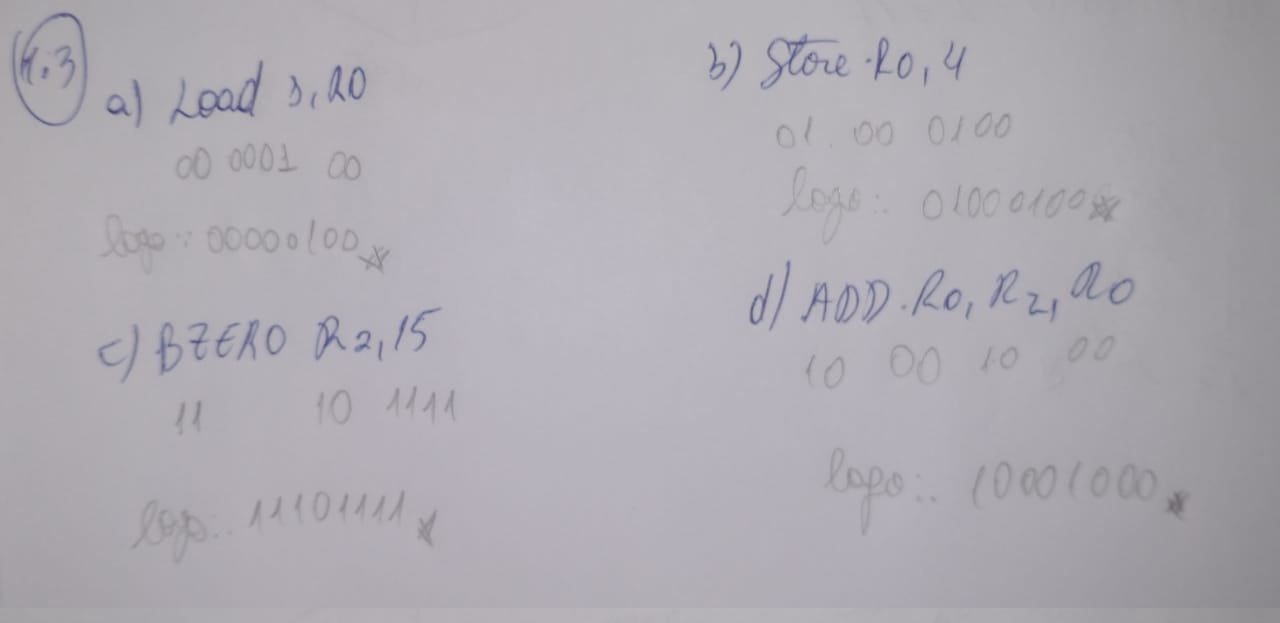 4.3
a) Load 3, R0
00 0001 00
logo: 00000100
b) Store R0, 4
01 00 0100
logo: 01000100
c) BZERO R2, 15
11 10 1111
logo: 11101111
d) ADD R0, R2, R0
10 00 10 00
logo: 10001000